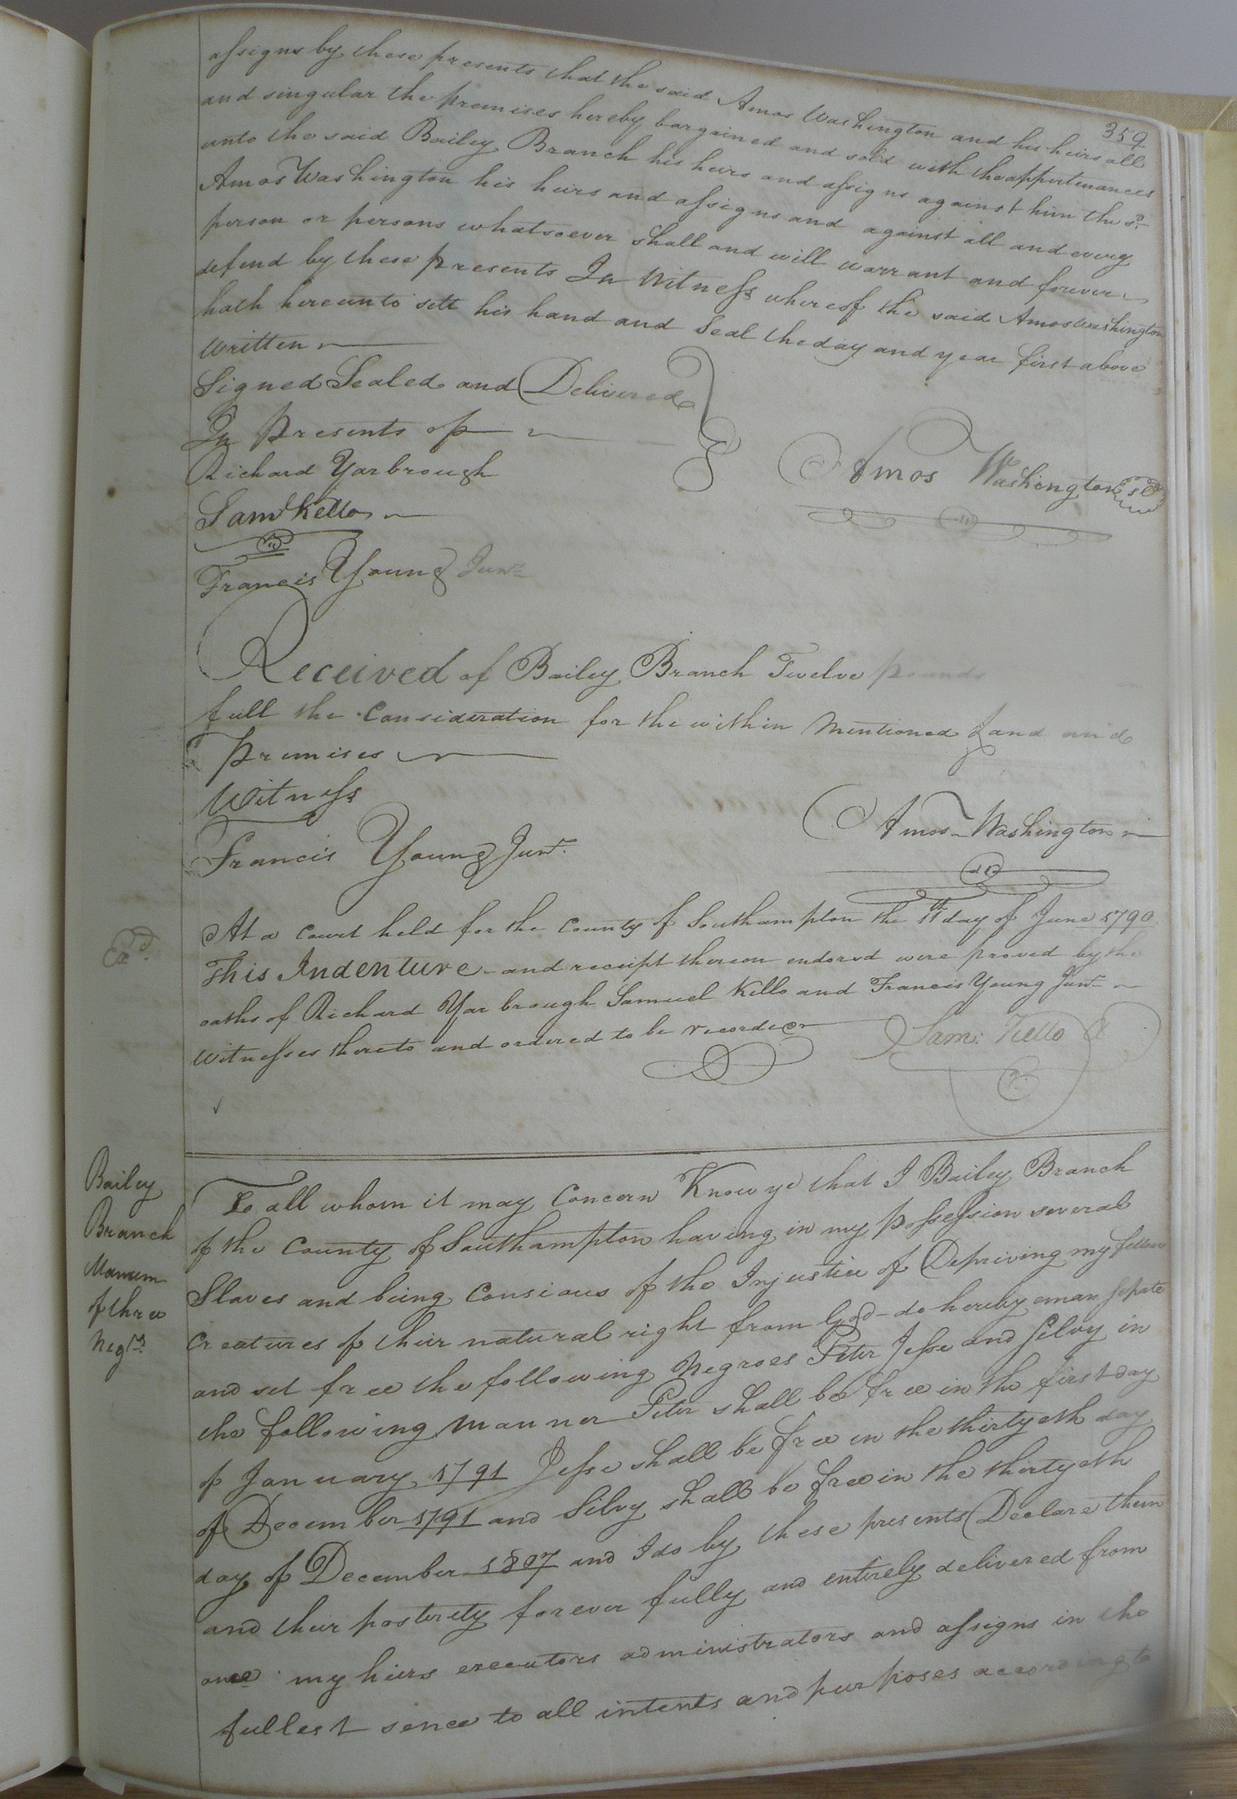 359
assigns by these presents that the said Amos Washington and his heirs all
and singular the premises hereby bargained and sold with the appertenances
unto the said Bailey Branch his heirs and assigns against him the sd.
Amos Washington his heirs and assigns and against all and every
person or persons whatsoever shall and will warrant and forever
defend by these presents In Witness whereof the said Amos Washington
hath hereunto sett his hand and Seal the day and year first above
written
Signed Sealed and Delivered
In presents of
Richard Yarbrough
Saml Kello
Francis Young Junr.
Amos Washington
Received of Bailey Branch Twelve pounds
full the Consideration for the within Mentioned Land and
premises
Witness
Francis Young Junr.
Amos Washington
Exd.
At a Court held for the County of Southampton the day of June 1790
This Indenture and receipt thereon endorsd were proved by the
oaths of Richard Yarbrough Samuel Kello and Francis Young Junr
Witnesses thereto and ordered to be recorded
Sam: Kello
Bailey
Branch
Manum
of three
Negrs.
To all whom it may Concern Know ye that I Bailey Branch
of the County of Southampton having in my possession several
Slaves and being Consious of the Injustice of Depriving my fellow
Creatures of their natural right from God do hereby emansipate
and set free the following Negroes Peter Jesse and Silvy in
the following Manner Peter shall be free in the first day
of January 1791 Jesse shall be free in the thirtyeth day
of December 1791 and Silvy shall be free in the thirtyeth
day of December 1807 and I do by these presents Declare them
and their posterity forever fully and entirely delivered from
my heirs executors administrators and assigns in the
fullest sence to all intents and purposes according to